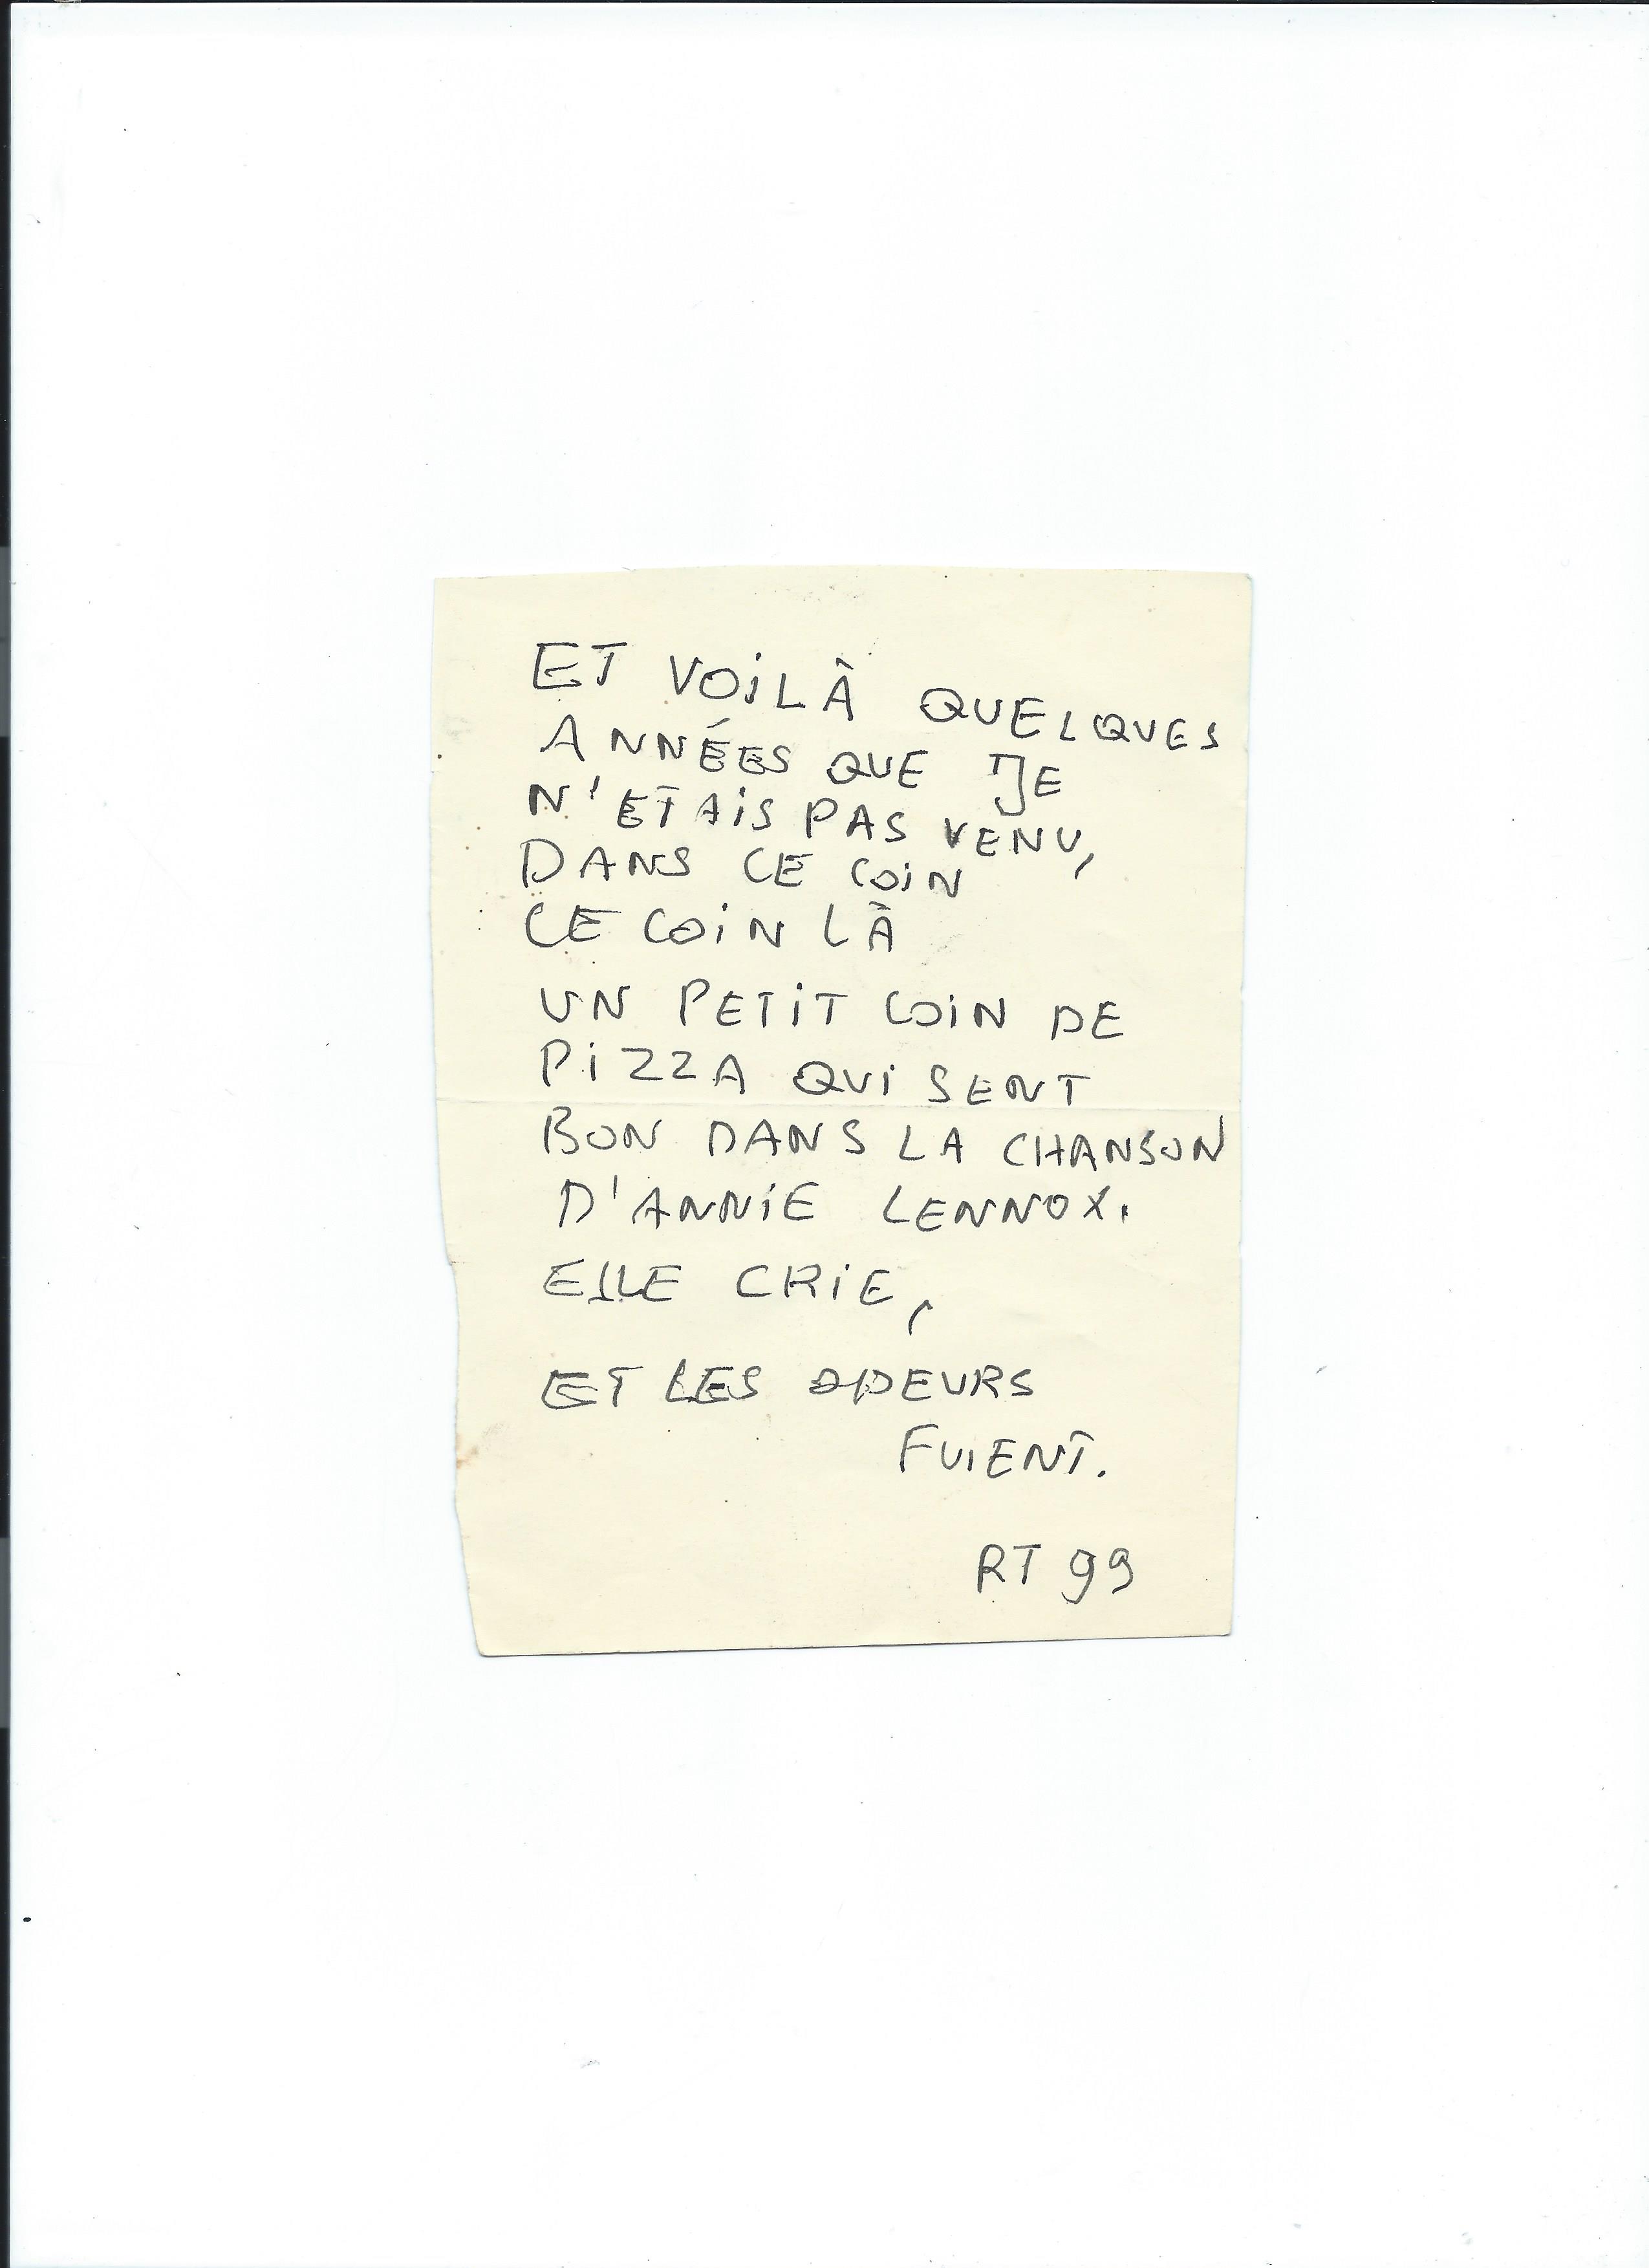 ET VOILÀ QUELQUES
ANNÉES QUE JE
N'ETAIS PAS VENU,
DANS CE COIN
CE COIN LÀ
UN PETIT COIN DE
PIZZA QUI SENT
BON DANS LA CHANSON
D'ANNIE LENNOX.
ELLE CRIE,
ET LES ODEURS
FUIENT.
RT 99